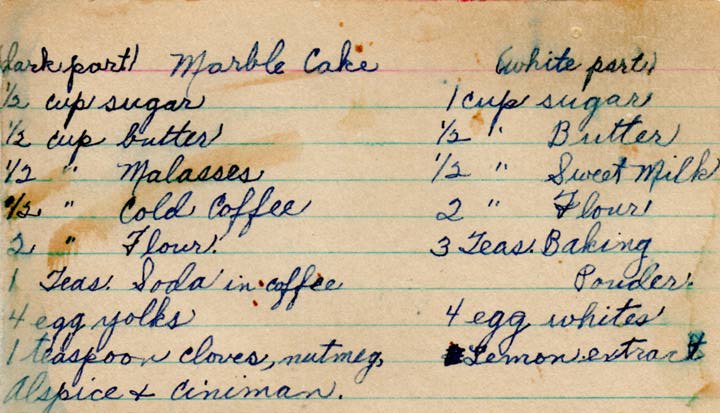 (dark part) Marble Cake (white part)
1/2 cup sugar
1/2 cup butter
1/2 " Malasses
1/2 " Cold Coffee
2 " Flour.
1 Teas. Soda in coffee
4 egg yolks
1 teaspoon cloves, nutmeg,
Alspice & Ciniman.
1 cup sugar
1/2 " Butter
1/2 " Sweet Milk
2 " Flour
3 Teas. Baking
Powder.
4 egg whites
Lemon extract